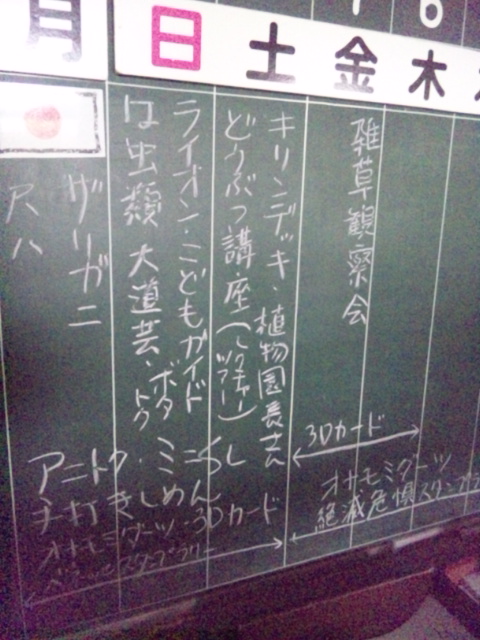 木
金
土
日
月
6
雑草観察会
3Dカード
オサモミダーツ
絶滅危惧スタンプラ
キリンデッキ・植物園長さん
どうぶつ講座(レクチャー ツアー)
ライオン・こどもガイド
は虫類 大道芸・ボタ トク
ザリガニ
アニトク・ミニSL
手打きしめん
オサモミダーツ・3Dカード